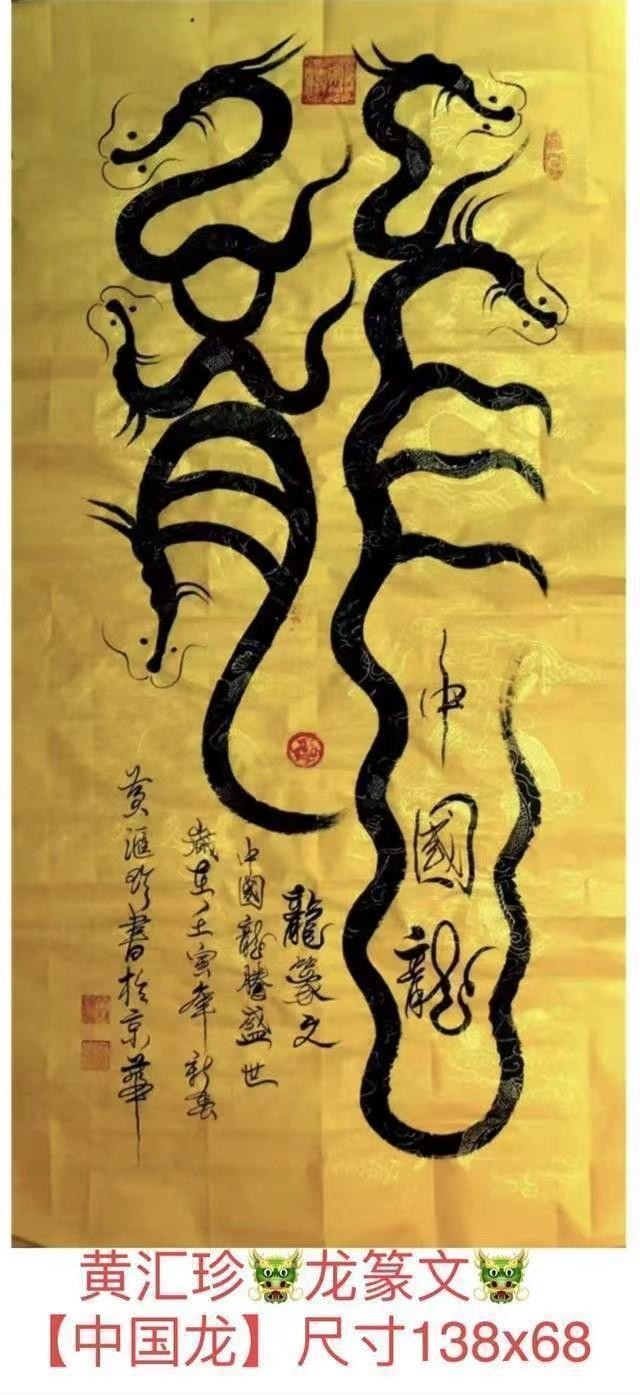 龍
中國龍
龍篆文
中國龍騰盛世
歲在壬寅年新春
黃滙珍書於京華
黄汇珍🐲龙篆文🐲
【中国龙】尺寸138x68